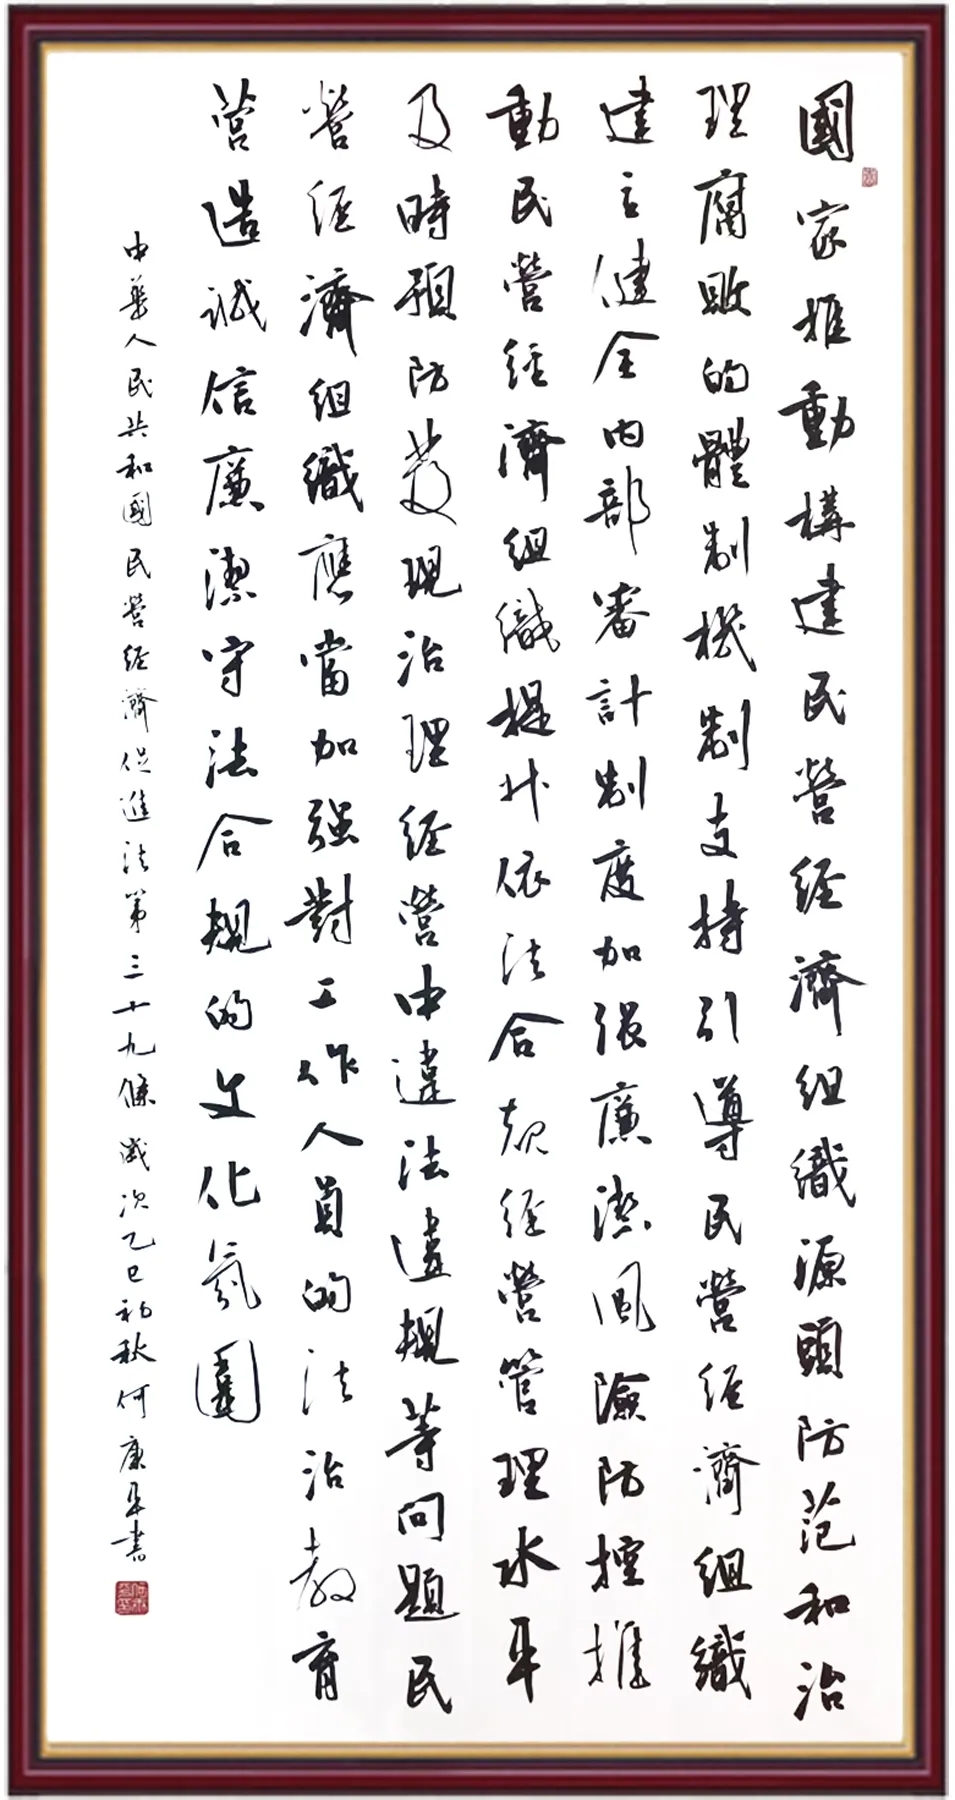 國家推動構建民營经濟组織源頭防范和治
理腐敗的體制機制支持引導民營经濟组織
建立健全内部審計制度加强廉潔風險防控推
動民營经濟组織提升依法合规经營管理水平
及時預防發現治理经營中違法違規等问題民
營经濟组織應當加强對工作人員的法治教育
营造诚信廉潔守法合規的文化氛圍
中華人民共和國民營经濟促進法第三十九條歲次乙巳初秋何康平書